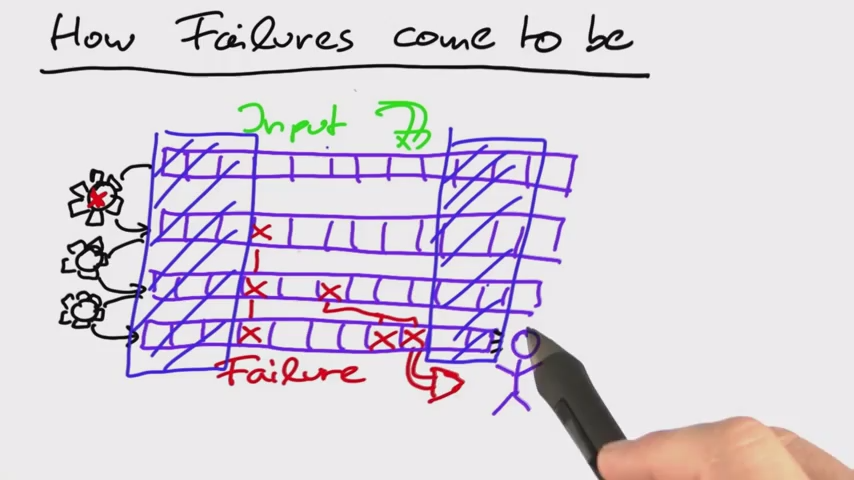 How Failures come to be
Input
Failure